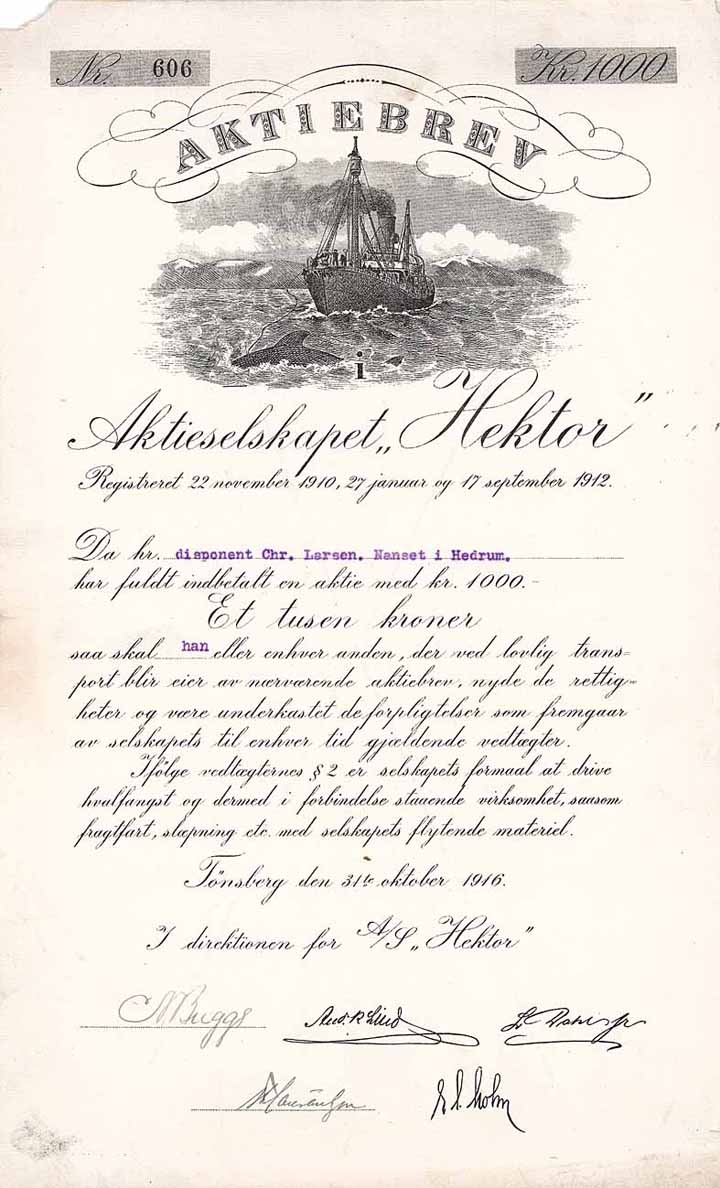 Nr. 606 Kr. 1000
AKTIEBREV
i
Aktieselskapet „Hektor”
Registreret 22 november 1910, 27 januar og 17 september 1912.
Da hr. disponent Chr. Larsen. Nanset i Hedrum.
har fuldt indbetalt en aktie med kr. 1000.-
Et tusen kroner
saa skal han eller enhver anden, der ved lovlig trans-
port blir eier av nærværende aktiebrev, nyde de rettig-
heter og være underkastet de forpligtelser som fremgaar
av selskapets til enhver tid gjældende vedtægter.
Ifölge vedtægternes § 2 er selskapets formaal at drive
hvalfangst og dermed i forbindelse staaende virksomhet, saasom
fragtfart, slæpning etc. med selskapets flytende materiel.
Tönsberg den 31te oktober 1916.
I direktionen for A/S „Hektor”
N Bugge